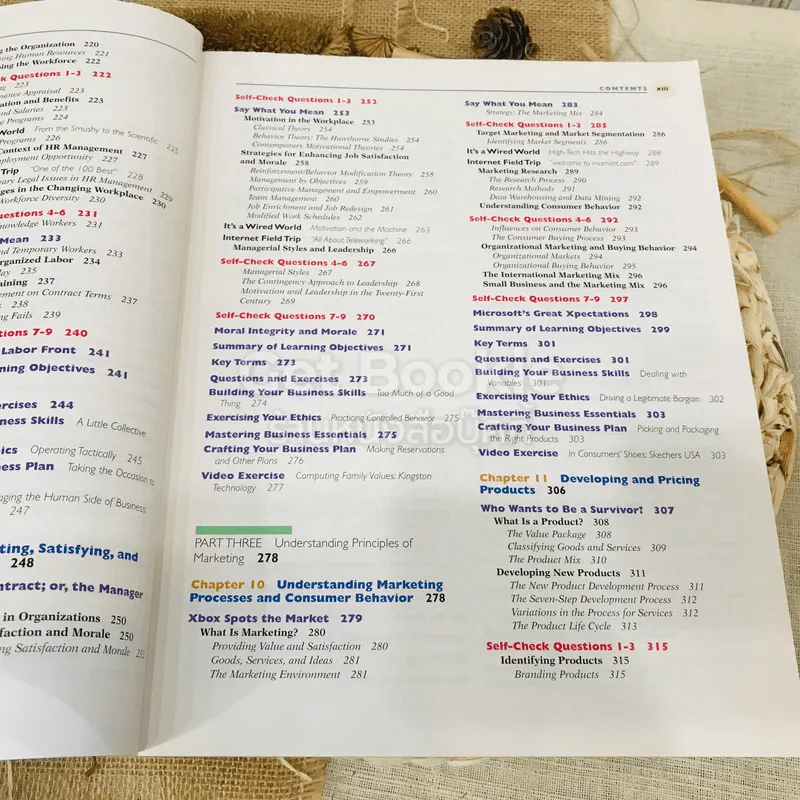 ng the Organization 220
ring Human Resources 221
ing the Workforce 222
ck Questions 1-3 222
ng 223
mance Appraisal 223
ation and Benefits 223
and Salaries 223
e Programs 224
World From the Smushy to the Scientific 225
Programs 226
Context of HR Management 227
ployment Opportunity 227
Trip "One of the 100 Best" 228
rary Legal Issues in HR Management 229
ges in the Changing Workplace 230
Workforce Diversity 230
uestions 4-6 231
nowledge Workers 231
Mean 233
nd Temporary Workers 233
rganized Labor 234
ay 235
aining 237
ement on Contract Terms 237
s 238
ng Fails 239
tions 7-9 240
Labor Front 241
ning Objectives 241
ercises 244
ness Skills A Little Collective
ics Operating Tactically 245
ess Plan Taking the Occasion to
aging the Human Side of Business:
247
ting, Satisfying, and
248
ntract; or, the Manager
in Organizations 250
faction and Morale 250
ng Satisfaction and Morale 252
Self-Check Questions 1-3 252
Say What You Mean 253
Motivation in the Workplace 253
Classical Theory 254
Behavior Theory: The Hawthorne Studies 254
Contemporary Motivational Theories 254
Strategies for Enhancing Job Satisfaction
and Morale 258
Reinforcement/Behavior Modification Theory 258
Management by Objectives 259
Participative Management and Empowerment 260
Team Management 260
Job Enrichment and Job Redesign 261
Modified Work Schedules 262
It's a Wired World Motivation and the Machine 263
Internet Field Trip "All About Teleworking" 266
Managerial Styles and Leadership 266
Self-Check Questions 4-6 267
Managerial Styles 267
The Contingency Approach to Leadership 268
Motivation and Leadership in the Twenty-First
Century 269
Self-Check Questions 7-9 270
Moral Integrity and Morale 271
Summary of Learning Objectives 271
Key Terms 273
Questions and Exercises 273
Building Your Business Skills Too Much of a Good
Thing 274
Exercising Your Ethics Practicing Controlled Behavior 275
Mastering Business Essentials 275
Crafting Your Business Plan Making Reservations
and Other Plans 276
Video Exercise Computing Family Values: Kingston
Technology 277
PART THREE Understanding Principles of
Marketing 278
Chapter 10 Understanding Marketing
Processes and Consumer Behavior 278
Xbox Spots the Market 279
What Is Marketing? 280
Providing Value and Satisfaction 280
Goods, Services, and Ideas 281
The Marketing Environment 281
CONTENTS xiii
Say What You Mean 283
Strategy: The Marketing Mix 284
Self-Check Questions 1-3 285
Target Marketing and Market Segmentation 286
Identifying Market Segments 286
It's a Wired World High-Tech Hits the Highway 288
Internet Field Trip "welcome to marriott.com" 289
Marketing Research 289
The Research Process 290
Research Methods 291
Data Warehousing and Data Mining 292
Understanding Consumer Behavior 292
Self-Check Questions 4-6 292
Influences on Consumer Behavior 293
The Consumer Buying Process 293
Organizational Marketing and Buying Behavior 294
Organizational Markets 294
Organizational Buying Behavior 295
The International Marketing Mix 296
Small Business and the Marketing Mix 296
Self-Check Questions 7-9 297
Microsoft's Great Xpectations 298
Summary of Learning Objectives 299
Key Terms 301
Questions and Exercises 301
Building Your Business Skills Dealing with
Variables 301
Exercising Your Ethics Driving a Legitimate Bargain 302
Mastering Business Essentials 303
Crafting Your Business Plan Picking and Packaging
the Right Products 303
Video Exercise In Consumers' Shoes: Skechers USA 303
Chapter 11 Developing and Pricing
Products 306
Who Wants to Be a Survivor? 307
What Is a Product? 308
The Value Package 308
Classifying Goods and Services 309
The Product Mix 310
Developing New Products 311
The New Product Development Process 311
The Seven-Step Development Process 312
Variations in the Process for Services 312
The Product Life Cycle 313
Self-Check Questions 1-3 315
Identifying Products 315
Branding Products 315